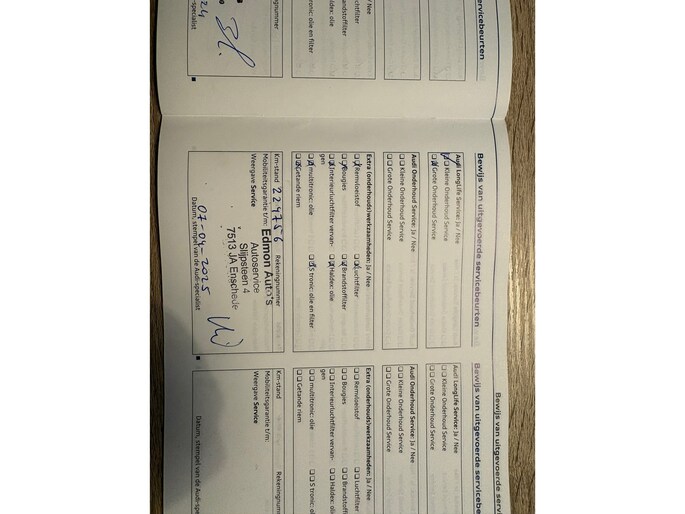 ervicebeurten
Luchtfilter
Brandstoffilter
Haldex: olie
S tronic: olie en filter
Rekeningnummer
Audi-specialist
Bewijs van uitgevoerde servicebeurten
Audi LongLife Service: Ja / Nee
Kleine Onderhoud Service
Grote Onderhoud Service
Audi Onderhoud Service: Ja / Nee
Kleine Onderhoud Service
Grote Onderhoud Service
Extra (onderhouds)werkzaamheden: Ja / Nee
Remvloeistof Luchtfilter
Bougies Brandstoffilter
Interieurluchtfilter vervan- Haldex: olie
gen
multitronic: olie S tronic: olie en filter
Getande riem
Km-stand 224756 Rekeningnummer
Mobiliteitsgarantie t/m: Edmon Auto's
Weergave Service Autoservice
Slijpsteen 4
7513 JA Enschede
07-04-2025
Datum, stempel van de Audi-specialist
Bewijs van uitgevoerde servicebeurt
Audi LongLife Service: Ja / Nee
Kleine Onderhoud Service
Grote Onderhoud Service
Audi Onderhoud Service: Ja / Nee
Kleine Onderhoud Service
Grote Onderhoud Service
Extra (onderhouds)werkzaamheden: Ja / Nee
Remvloeistof Luchtfilter
Bougies Brandstoffi
Interieurluchtfilter vervan- Haldex: o
gen
multitronic: olie S tronic: o
Getande riem
Km-stand Rekeningn
Mobiliteitsgarantie t/m:
Weergave Service
Datum, stempel van de Aud
Bewijs van uitgevoerde